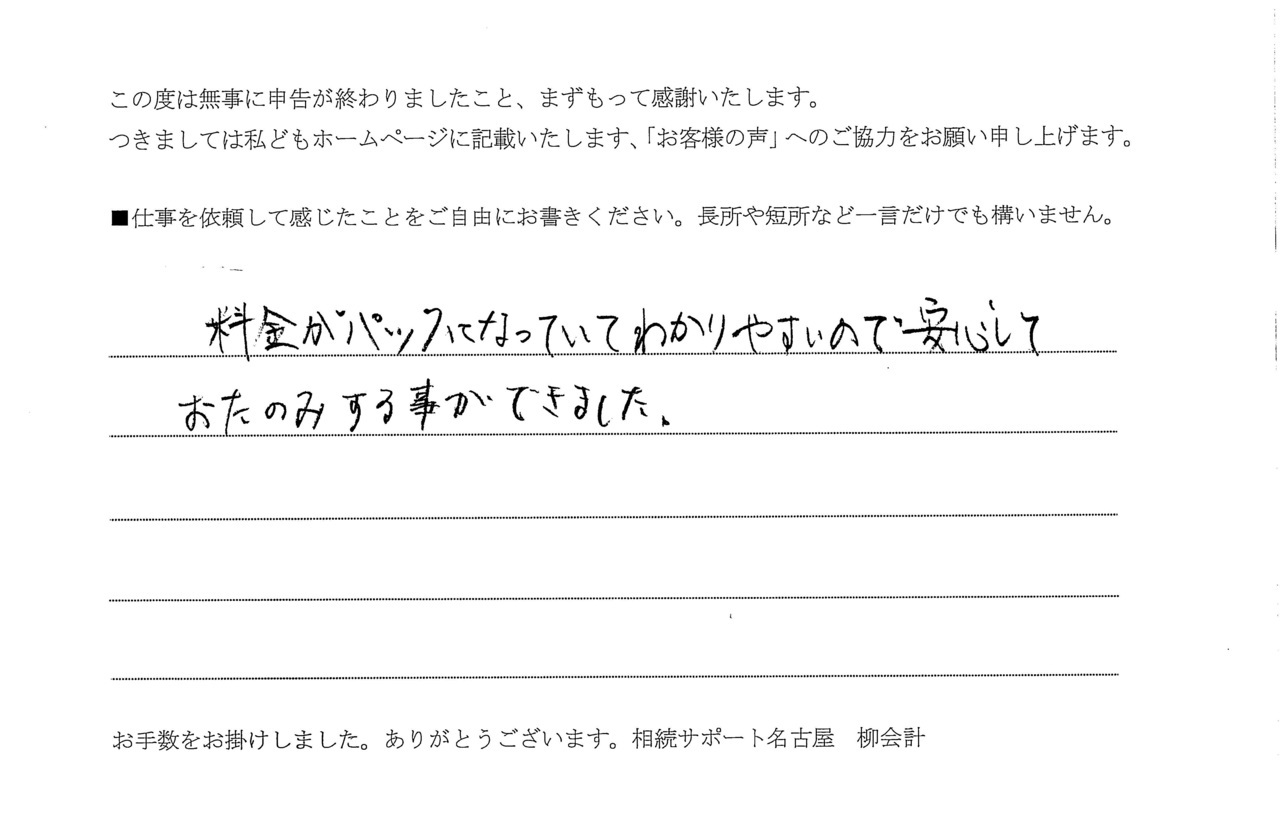 この度は無事に申告が終わりましたこと、まずもって感謝いたします。
つきましては私どもホームページに記載いたします、「お客様の声」へのご協力をお願い申し上げます。
■仕事を依頼して感じたことをご自由にお書きください。長所や短所など一言だけでも構いません。
料金がパックになっていてわかりやすいので安心して
おたのみする事ができました。
お手数をお掛けしました。ありがとうございます。相続サポート名古屋　柳会計